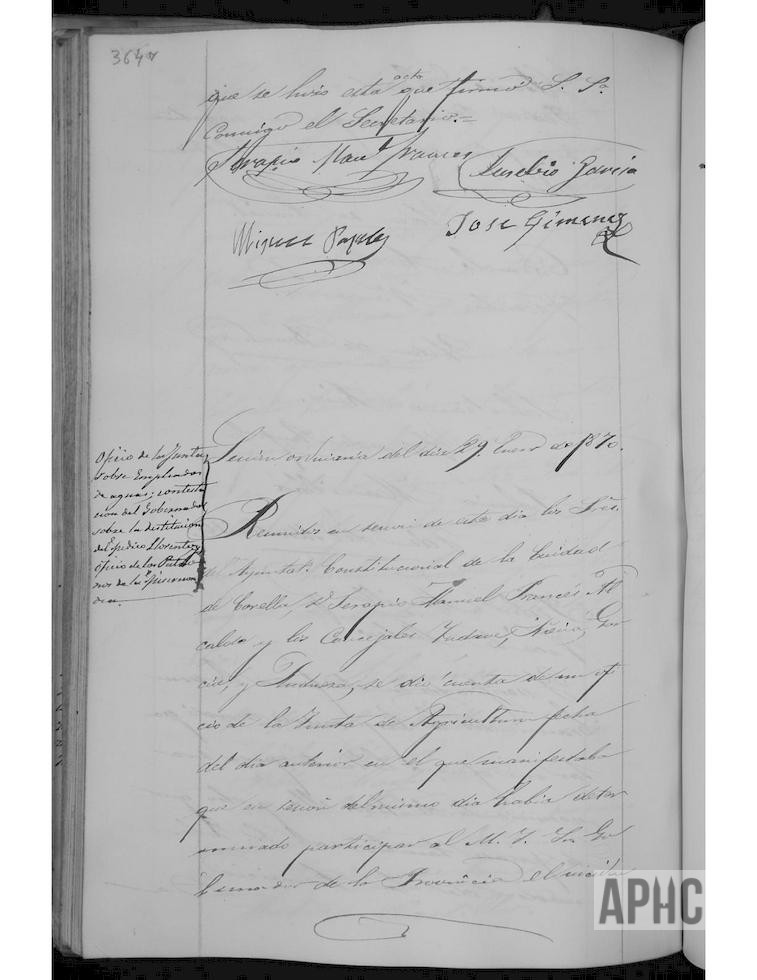 364v
que se hizo esta acta que firmó S. Sª
Conmigo el Secretario.=
Serapio Manl Frances
Eusebio Garcia
Miguel
Jose Gimenez
Oficio de la Junta
sobre Empleados
de aguas; contesta
cion del Gobernador
sobre la destitucion
del Llorente y
oficio de los
nos de la
Sesion ordinaria del dia 29 Enero de 1870.
Reunidos en sesion de este dia los Sres.
del Ayuntatº Constitucional de la Ciudad
de Corella, Dn Serapio Manuel Francés Al
calde y los Concejales Gar
cia, y se dió cuenta de un ofi
cio de la Junta de Agricultura fecha
del dia anterior en el que manifestaba
que en sesion del mismo dia habia deter
minado participar al M. Y. Sr. Go
bernador de la Provincia el
APHC